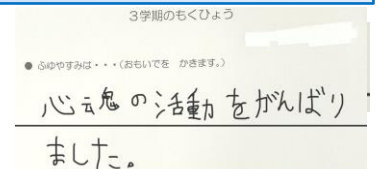 3学期のもくひょう
● ふゆやすみは・・・（おもいでを かきます。）
心云鬼の活動をがんばり
ました。